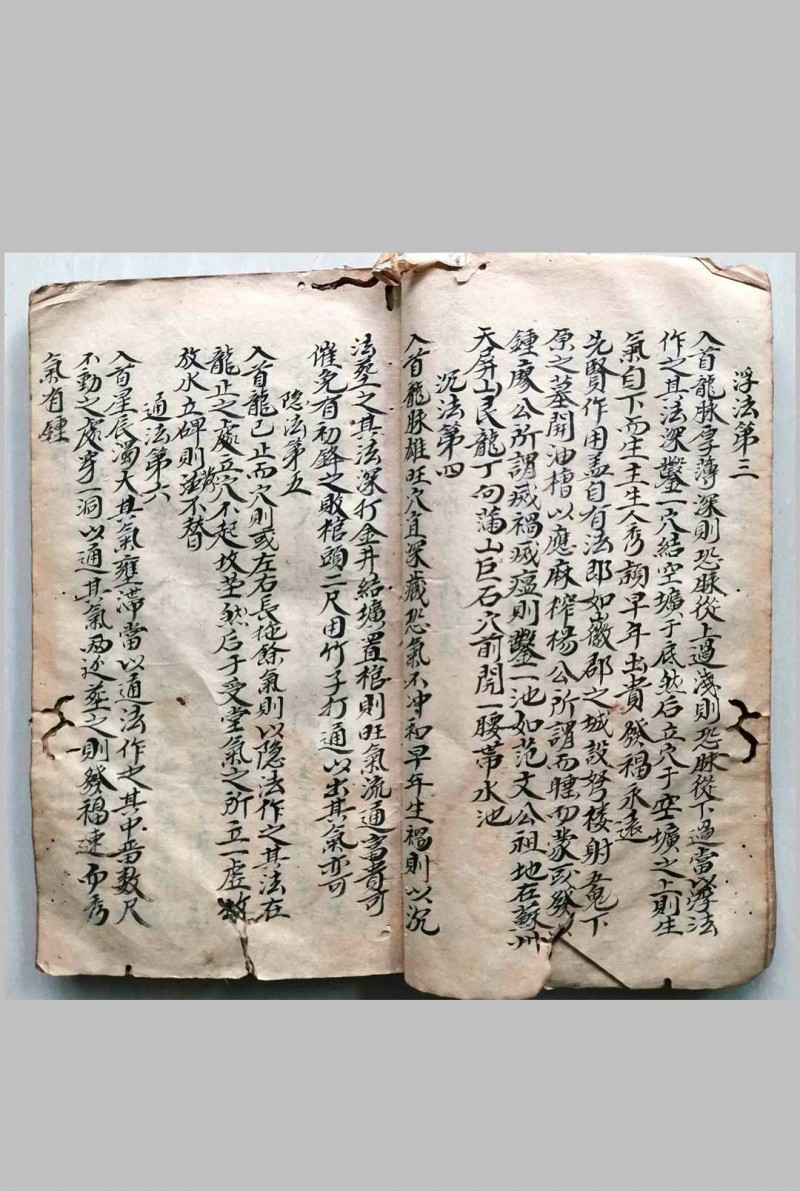 浮法第三
入首龍脉厚薄深則恐脉從上過淺則恐脉從下過當以浮法
作之其法深鑿一穴結空壙于底然后立穴于空壙之上則生
氣自下而生主生人秀穎早年出貴發福永遠
先賢作用盖自有法郎如徽郡之城設弩楼射丑
原之墓開油槽以應麻榨楊公所謂而蒙或發
鍾廖公所謂瘟則鑿一池如范文公祖地在蘇州
天屏山艮龍丁向蒲山巨石穴前開一腰帶水池
沉法第四
入首龍脉雄旺穴宜深藏恐氣不冲和早年生禍則以沉
法塟之其法深打金井結壙置棺則旺氣流通富貴可
催免有初鋒之敗棺頭二尺用竹子打通以出其氣亦可
隐法第五
入首龍已止而穴則或左右長拖餘氣則以隐法作之其法在
龍止之處立穴不起坟茔然后于受堂氣之所立一虛塚
放水立碑則發不替
通法第六
入首星辰濁大其氣壅滯當以通法作之其中啚数尺
不動之處穿一洞以通其氣而迯塟之則發福速而秀
氣有鍾